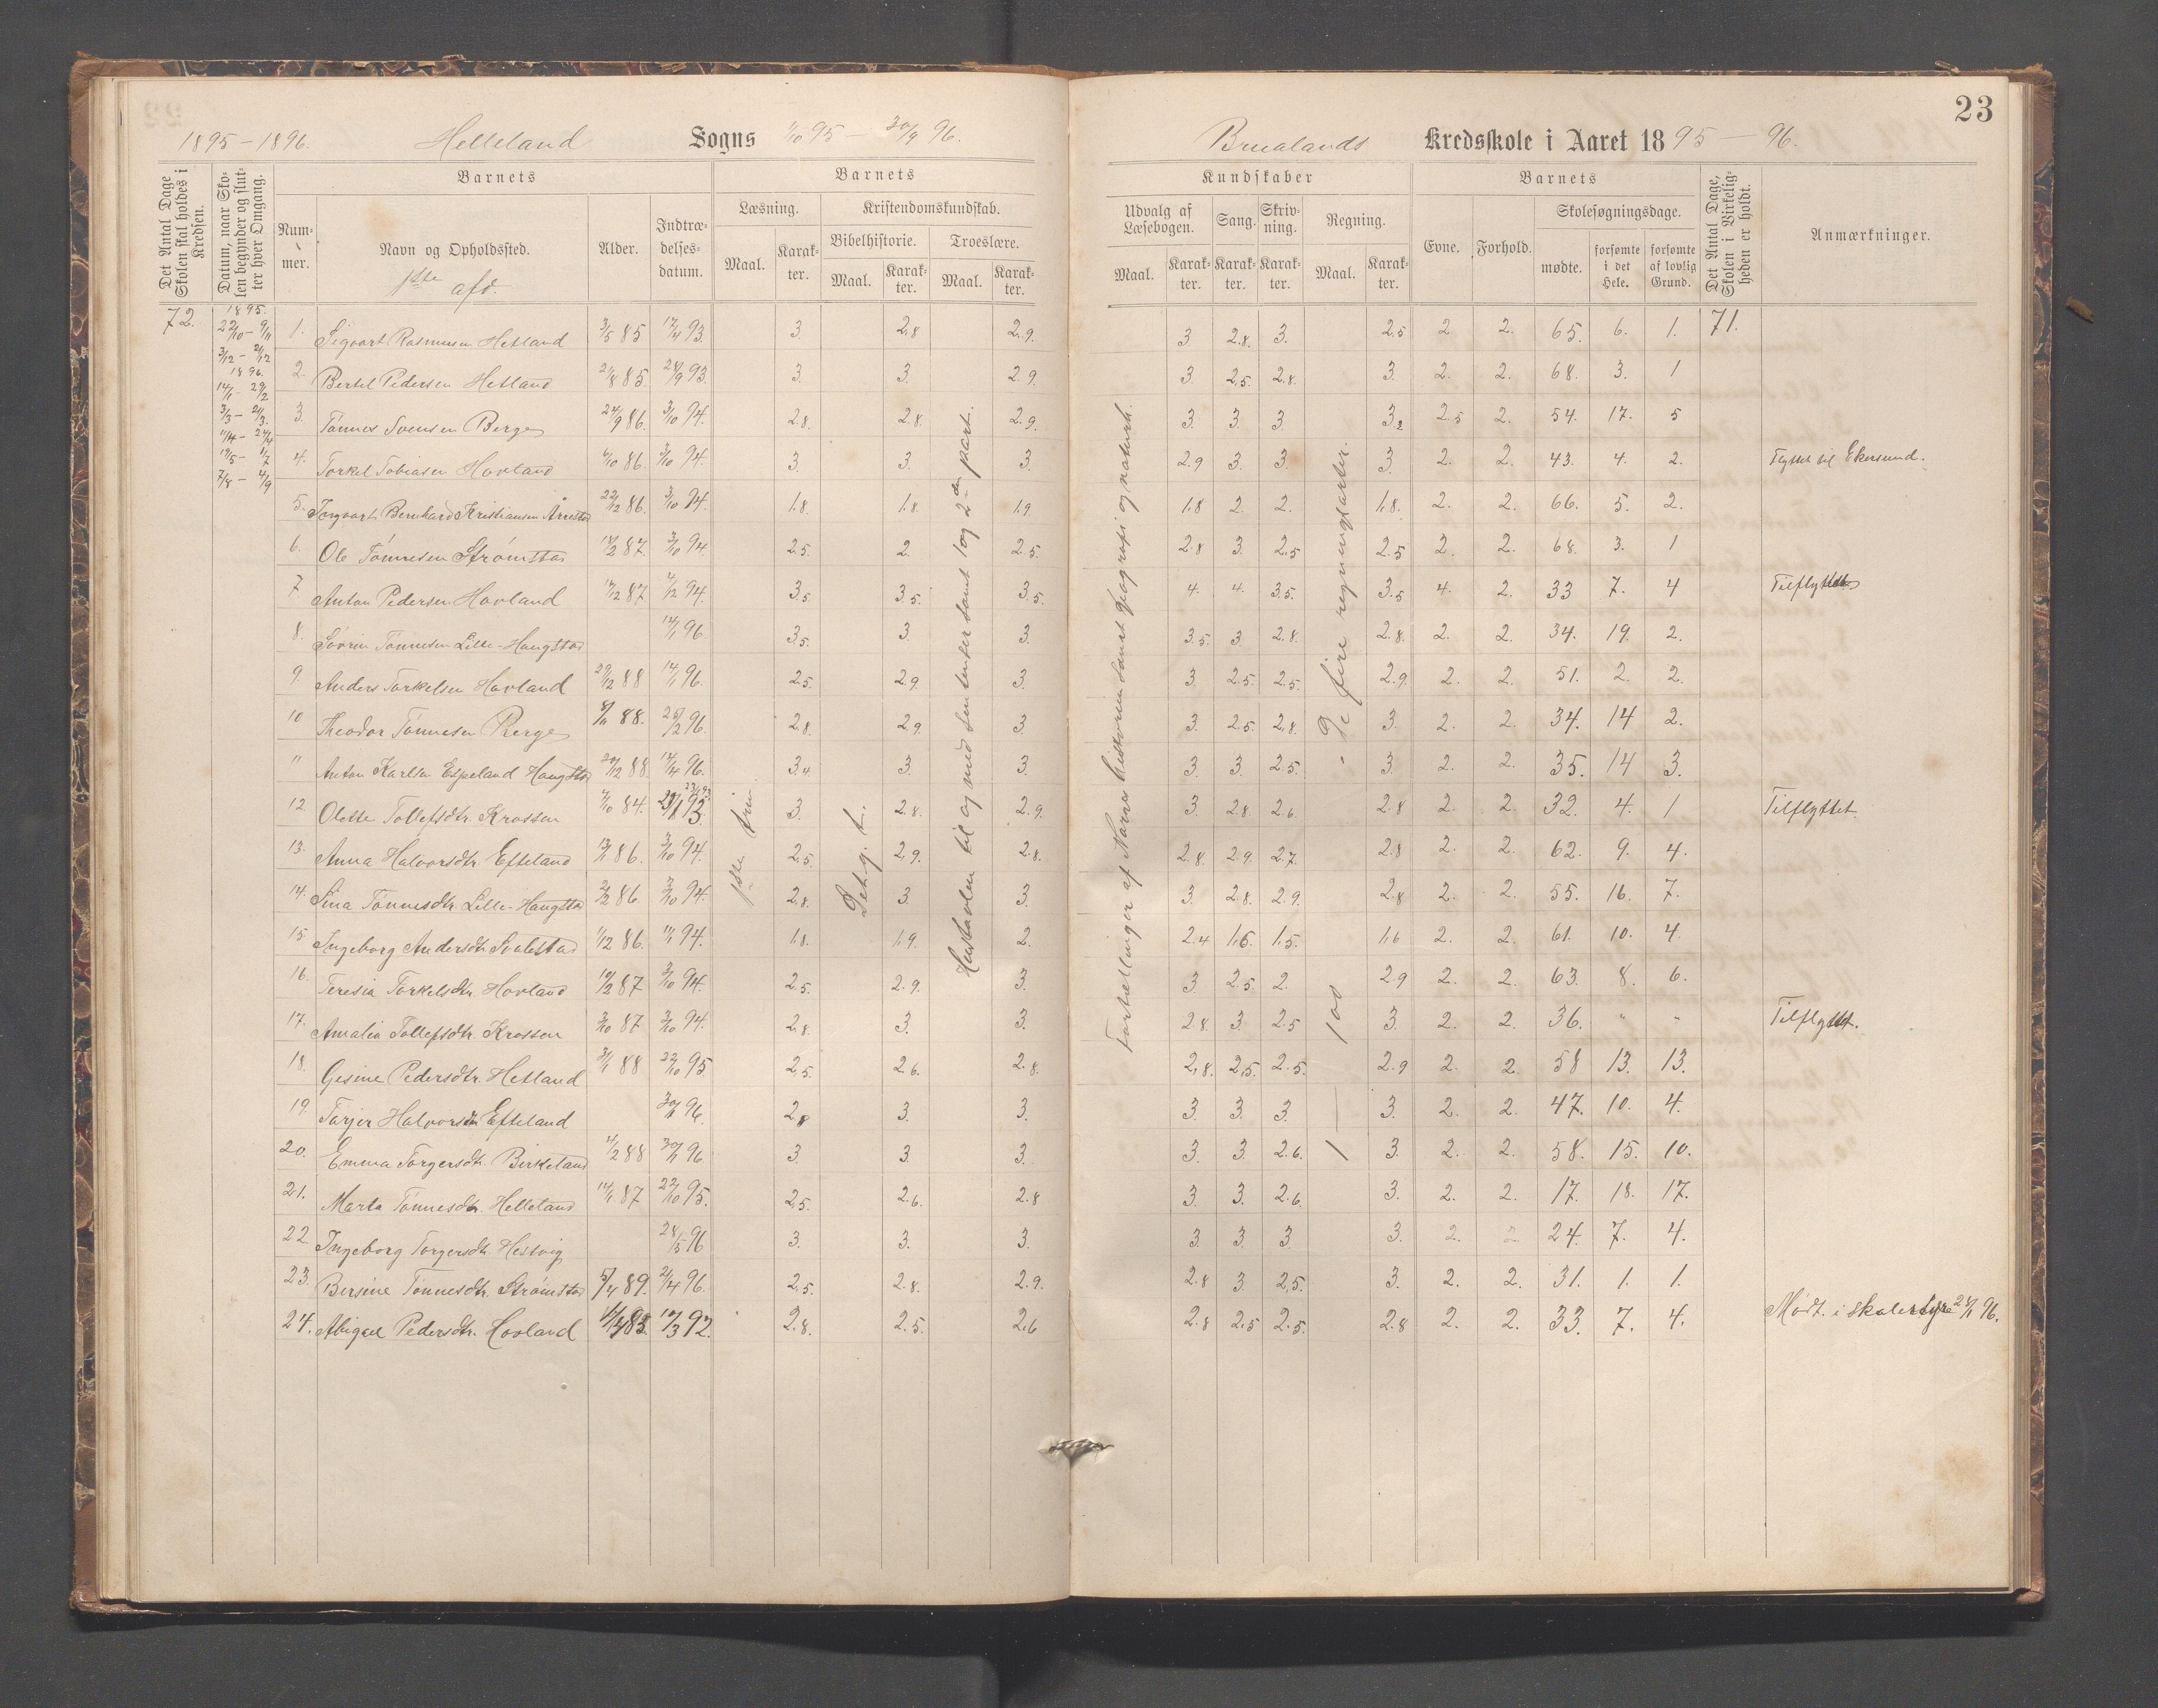 23
1895-1896. Helleland Sogns 1/10 95 - 30/9 96. Bruelands Kredsskole i Aaret 1895 - 96.
Det Antal Dage Skolen skal holdes i Kredsen.
Datum, naar Skolen begynder og slutter hver Omgang.
Barnets
Nummer.
Navn og Opholdssted.
1ste afd.
Alder.
Indtrædelsesdatum.
Barnets
Læsning.
Maal.
Karakter.
Kristendomskundskab.
Bibelhistorie.
Maal.
Karakter.
Troeslære.
Maal.
Karakter.
Kundskaber
Udvalg af Læsebogen.
Maal.
Karakter.
Sang.
Karakter.
Skrivning.
Karakter.
Regning.
Maal.
Karakter.
Barnets
Evne.
Forhold.
Skolesøgningsdage.
mødte.
forsømte i det Hele.
forsømte af lovlig Grund.
Det Antal Dage, Skolen i Virkeligheden er holdt.
Anmærkninger.
72.
1895.
22/10 - 9/11
3/12 - 21/12
1896.
14/1 - 29/2
3/3 - 21/3.
11/4 - 24/4
19/5 - 1/7
7/8 - 4/9
1. Sigvart Rasmusen Hetland 3/5 85 17/4 93. 3. 2.8 2.9. 3 2.8. 3. 2.5 2. 2. 65. 6. 1. 71.
2. Bertel Pedersen Hetland 21/8 85. 28/9 93. 3. 3. 2.9. 3. 2.5. 2.8. 3. 2. 2. 68. 3. 1
3. Tønnes Svensen Berge 24/9 86. 3/10 94. 2.8. 2.8. 2.9. 3. 3. 3. 3.2 2.5 2. 54. 17. 5
4. Torkel Tobiasen Hovland 6/10 86. 3/10 94. 3. 3. 3. 2.9 3. 3. 3. 2. 2. 43. 4. 2. Flyttet til Ekersund.
5. Ingvart Bernhard Kristiansen Årrestad 22/12 86. 3/10 94. 1.8. 1.8. 1.9. 1.8 2. 2. 1.8. 2. 2. 66. 5. 2.
6. Ole Tønnesen Strømstad 12/2 87. 3/10 94. 2.5. 2. 2.5. 2.8 3. 2.5 2.5 2. 2. 68. 3. 1
7. Anton Pedersen Hovland 17/12 87 4/12 94. 3.5. 3.5. 3.5. 4. 4. 3.5. 3.5 4. 2. 33 7. 4 Tilflyttet
8. Sørin Tønnesen Lille-Haugstad 14/1 96 3.5. 3. 3. 3.5. 3 2.8. 2.8. 2. 2. 34. 19. 2.
9. Anders Torkelsen Hovland 29/12 88 14/1 96. 2.5. 2.9. 3. 3. 2.5. 2.5. 2.9. 2. 2. 51. 2. 2.
10 Theodor Tønnesen Berge 8/11 88. 25/2 96. 2.8. 2.9. 3. 3. 2.5 2.8. 3. 2. 2. 34. 14 2.
11 Anton Karlsen Espeland Haugstad 20/12 88. 14/4 96. 3.4 3. 3. 3. 3. 2.5. 3. 2. 2. 35. 14 3.
12. Olette Tollefsdtr. Krossen 4/10 84. 3. 2.8. 2.9. 3. 2.8. 2.6. 2.8 2. 2. 32. 4. 1 Tilflyttet
13. Anna Halvorsdtr. Efteland 13/11 86. 3/10 94. 2.5 2.9. 2.8. 2.8. 2.9. 2.7. 2.8 2. 2. 62. 9. 4.
14. Sina Tønnesdtr. Lille-Haugstad 2/2 86. 3/10 94. 2.8. 3. 3. 3. 2.8. 2.9. 2.8 2. 2. 55. 16. 7.
15 Ingeborg Andersdtr Svalestad 1/12 86. 11/1 94. 1.8. 1.9. 2. 2.4 1.6. 1.5. 1.6 2. 2. 61. 10. 4.
16. Teresia Torkelsdtr. Hovland 10/2 87 3/10 94. 2.5. 2.9. 3. 3. 2.5. 2. 2.9 2. 2. 63. 8. 6.
17. Amalia Tollefsdtr. Krossen 3/10 87 3/10 94. 2.8. 3. 3. 2.8. 3. 2.5 3. 2. 2. 36. " " Tilflyttet.
18. Gesine Pedersdtr. Hetland 31/1 88 22/10 95 2.5. 2.6. 2.8. 2.8. 2.5. 2.5. 2.9 2. 2. 58 13. 13.
19. Tarjer Halvorsdtr Efteland 30/1 96. 2.8 3. 3. 3. 3. 3. 3. 2. 2. 47. 10. 4.
20. Emma Torgersdtr. Birkeland 4/2 88 30/1 96 3. 3. 3. 3. 3. 2.6. 3. 2. 2. 58. 15. 10.
21. Marta Tønnesdtr. Helleland 14/1 87 22/10 95. 2.5. 2.6. 2.8 3 3. 2.6 3. 2. 2. 17. 18. 17.
22 Ingeborg Torgersdtr. Hestvig 28/5 96 3. 3. 3. 3. 3. 3. 3. 2. 2. 24. 7. 4.
23. Bersine Tønnesdtr. Strømstad 5/4 89. 21/4 96. 2.5. 2.8. 2.9. 2.8 3 2.5. 3. 2. 2. 31. 1. 1.
24. Abigael Pedersdtr. Hovland 17/3 92. 2.8. 2.5. 2.6 2.8 2.5 2.5. 2.8 2. 2. 33. 7. 4. Mødt. i skolestyre 24/1 96.
1ste trin
Det g. t.
Hustavlen til og med sentenser samt 1 og 2den part.
Fortællinger af Norres historien samt geografi og naturh.
1 — 100 - De fire regningsarter.